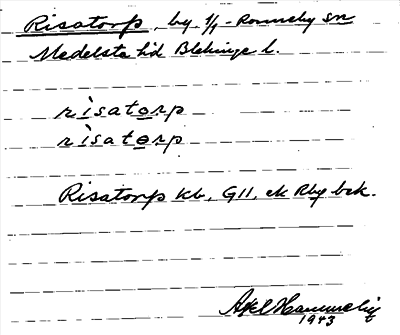 Risatorp, by 1/1 Ronneby sn
Medelsta hd Blekinge l.
risatorp
risatorp
Risatorp kb, G11, ek Rby bek.
Axel Hammelin
1943